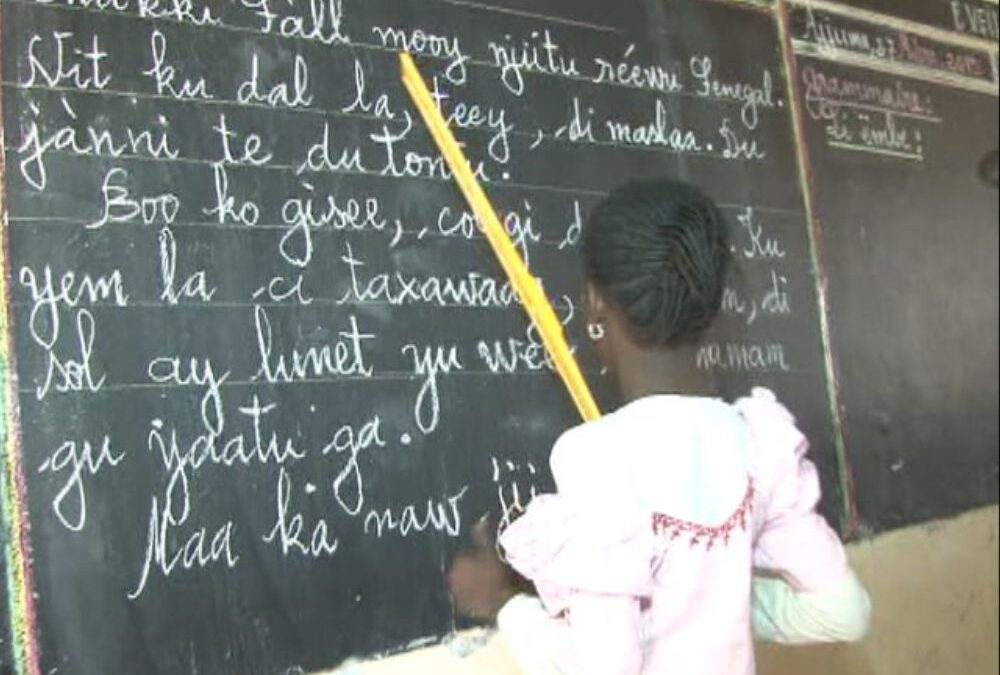 Fàll mooy njiitu réewu Senegal.
Nit ku dal la, teey, di maslaa. Du
jànni te du tontu.
Boo ko gisee, Ku
yem la ci di
sol ay lunet yu ramam
gu yaatu ga.
Naa ka naw
Àjjuma, 27
grammaire:
Li ëmb: